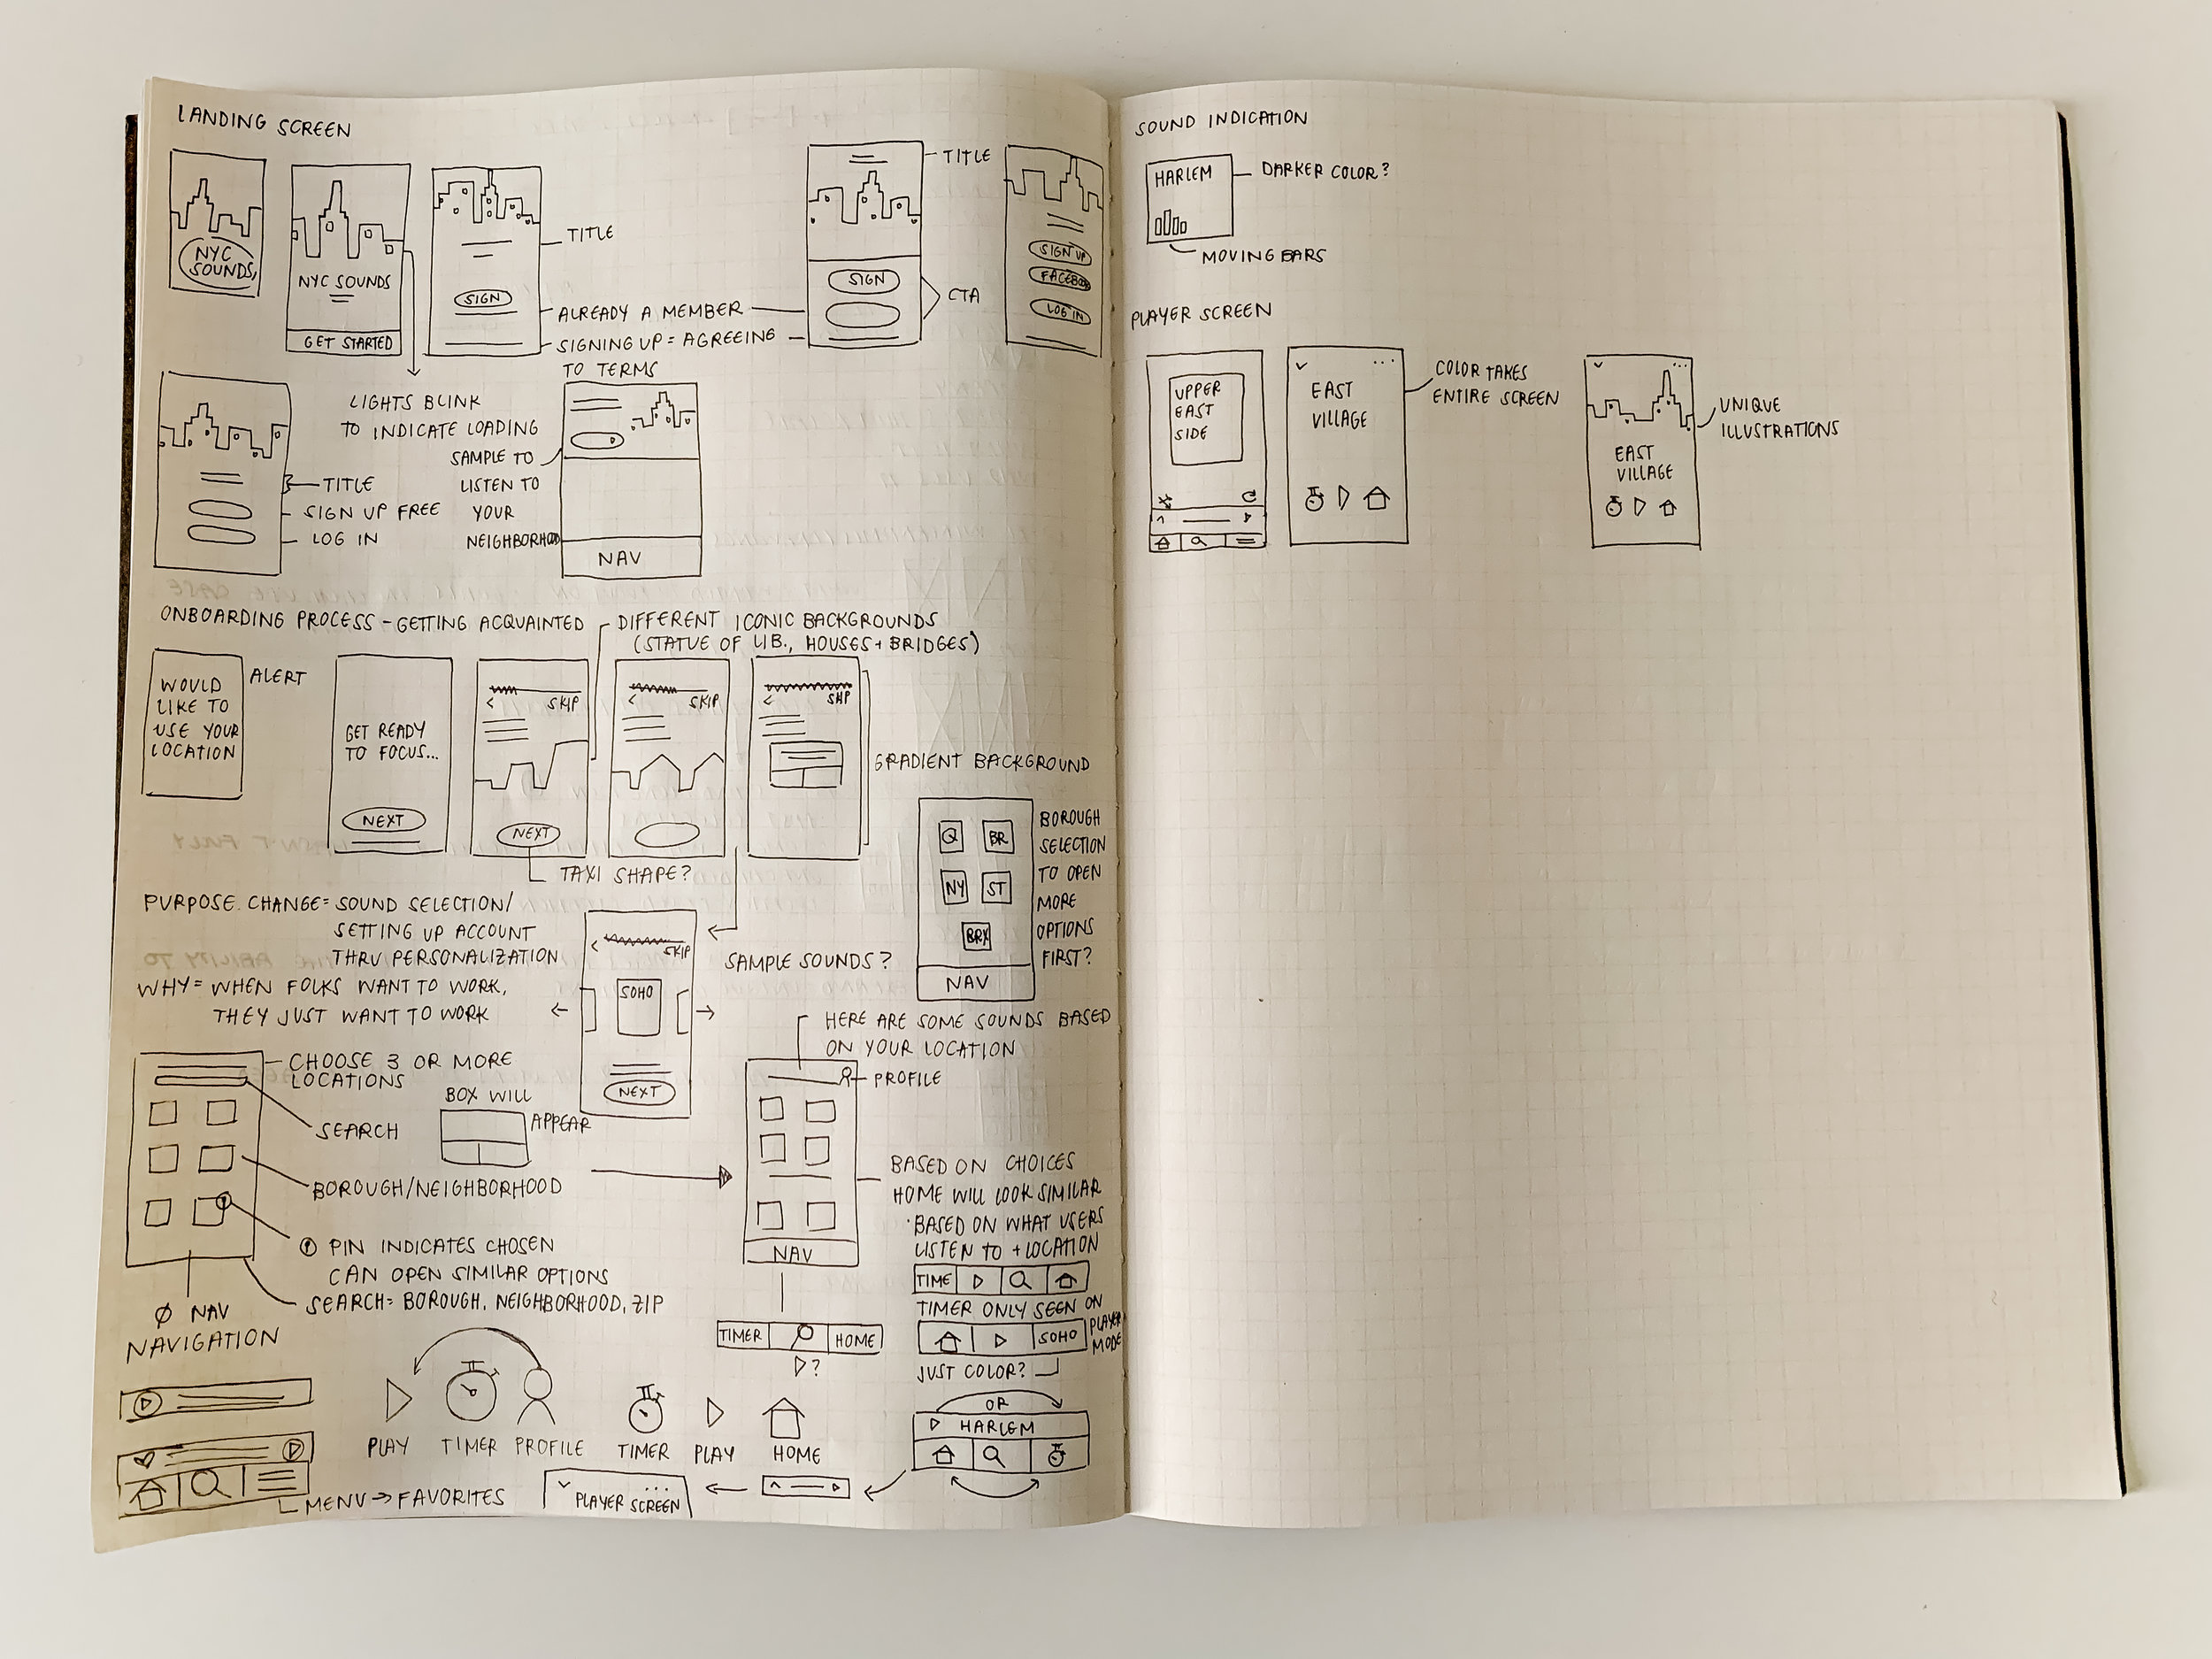 LANDING SCREEN
NYC
SOUNDS
NYC SOUNDS
GET STARTED
SIGN
TITLE
ALREADY A MEMBER
SIGNING UP = AGREEING
TO TERMS
TITLE
SIGN
CTA
SIGN UP
FACEBOOK
LOG IN
LIGHTS BLINK
TO INDICATE LOADING
TITLE
SIGN UP FREE
LOG IN
SAMPLE TO
LISTEN TO
YOUR
NEIGHBORHOOD
NAV
ONBOARDING PROCESS - GETTING ACQUAINTED
DIFFERENT ICONIC BACKGROUNDS
(STATUE OF LIB., HOUSES + BRIDGES)
WOULD
LIKE TO
USE YOUR
LOCATION
ALERT
GET READY
TO FOCUS...
NEXT
< SKIP
NEXT
< SKIP
< SKIP
GRADIENT BACKGROUND
TAXI SHAPE?
Q BR
NY ST
BRX
NAV
BOROUGH
SELECTION
TO OPEN
MORE
OPTIONS
FIRST?
PURPOSE CHANGE = SOUND SELECTION/
SETTING UP ACCOUNT
THRU PERSONALIZATION
WHY = WHEN FOLKS WANT TO WORK,
THEY JUST WANT TO WORK
< SKIP
SOHO
NEXT
SAMPLE SOUNDS?
HERE ARE SOME SOUNDS BASED
ON YOUR LOCATION
PROFILE
NAV
CHOOSE 3 OR MORE
LOCATIONS
SEARCH
BOX WILL
APPEAR
BOROUGH/NEIGHBORHOOD
PIN INDICATES CHOSEN
CAN OPEN SIMILAR OPTIONS
SEARCH = BOROUGH, NEIGHBORHOOD, ZIP
Ø NAV
BASED ON CHOICES
HOME WILL LOOK SIMILAR
· BASED ON WHAT USERS
LISTEN TO + LOCATION
TIME
TIMER ONLY SEEN ON
PLAYER
MODE
SOHO
JUST COLOR?
OR
HARLEM
TIMER HOME
?
NAVIGATION
PLAY TIMER PROFILE
TIMER PLAY HOME
MENU → FAVORITES
PLAYER SCREEN
SOUND INDICATION
HARLEM
DARKER COLOR?
MOVING BARS
PLAYER SCREEN
UPPER
EAST
SIDE
EAST
VILLAGE
COLOR TAKES
ENTIRE SCREEN
EAST
VILLAGE
UNIQUE
ILLUSTRATIONS